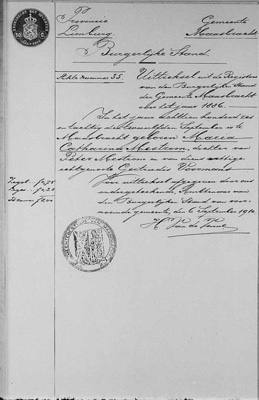 Provincie Limburg
Gemeente Maasbracht
Burgerlijke Stand
Akte nummer 35.
Uittreksel uit de Registers
van den Burgerlijke Stand
der Gemeente Maasbracht
over het jaar 1886.
In het jaar achttien honderd zes
en tachtig den September is te
Maasbracht geboren Maria
Catharina Mestrom, dochter van
Peter Mestrom en van diens wettige
echtgenoote Gertrudis
Voor uittreksel afgegeven door ons
ondergeteekende, Ambtenaar van
den Burgerlijken Stand van voor-
noemde gemeente, den 6 September 1910
Zegel
Leges